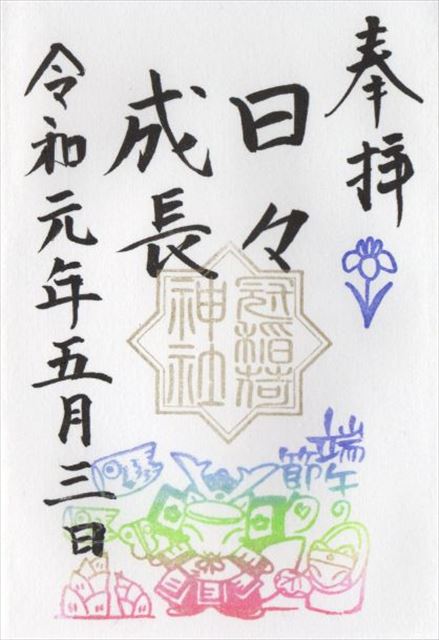 奉拝
日々
成長
冠稲荷
神社
令和元年五月三日
端午
節